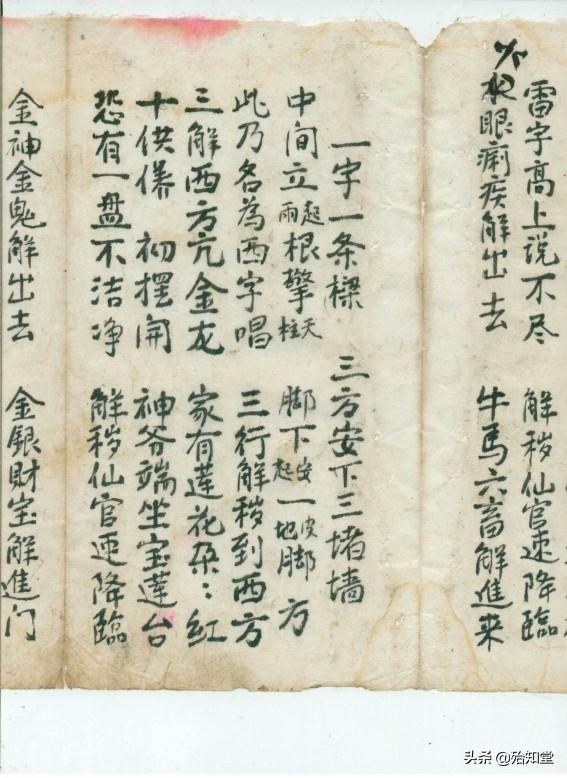 雷字高上说不尽 解秽仙官速降臨
水眼痢疾解出去 牛馬六畜解進来
一字一条樑 三方安下三堵墙
中间立起雨根擎天柱 脚下安起一皮地脚方
此乃名為西字唱 三行解秽到西方
三解西方亢金龙 家有莲花朵：红
十供俻 初摆開 神爷端坐宝莲台
恐有一盘不洁净 解秽仙官速降臨
金神金鬼解出去 金銀財宝解進门
头条 @殆知堂